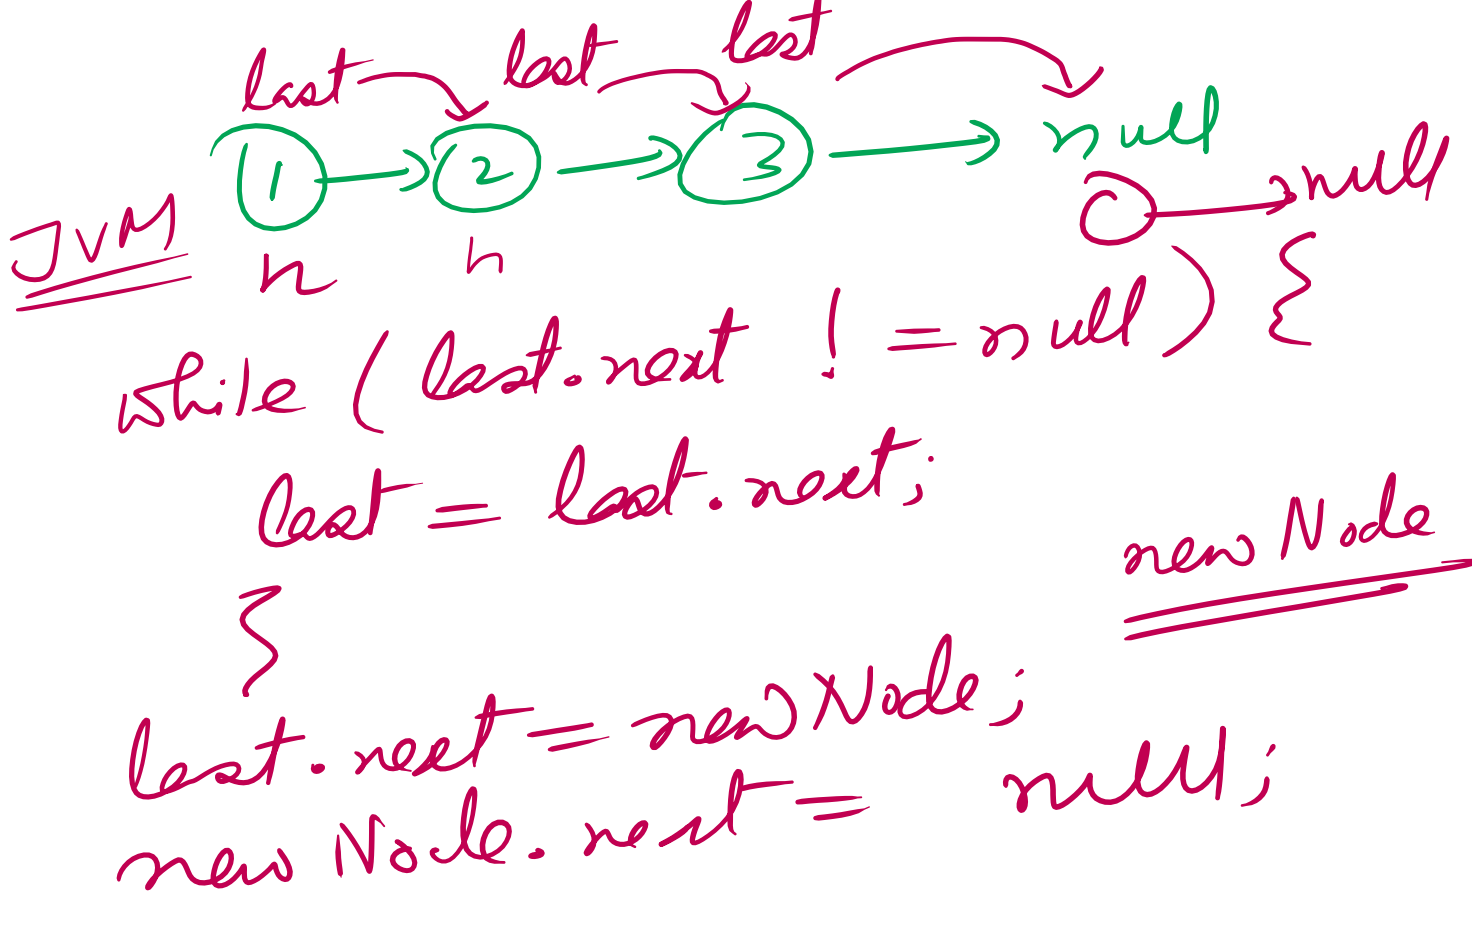 last last last
1 2 3 null
null
JVM
n n
while (last.next != null) {
last = last.next;
}
new Node
last.next = new Node;
new Node.next = null;